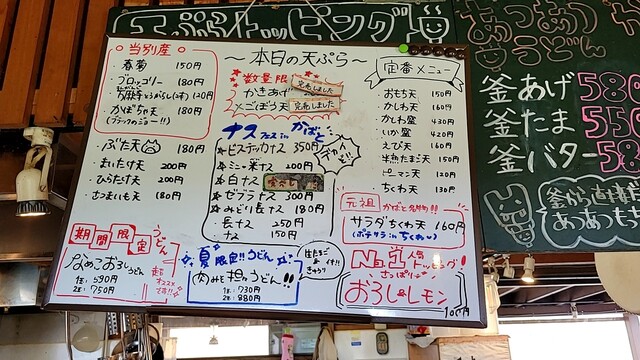 天ぷらトッピング
当別産
春菊 150円
ブロッコリー 180円
かぼちゃ天 180円
ぶた天 180円
まいたけ天 200円
ひらたけ天 200円
さつまいも天 180円
期間限定
うどん
なめこおろしうどん
1玉:590円
2玉:750円
～本日の天ぷら～
数量限定
かきあげ 完売しました
ごぼう天 完売しました
ナスフェス in かばと
ビステッカナス 350円
デカイぞ!!
ミニ楽ナス 200円
白ナス
ゼブラナス 300円
みどり長ナス 180円
長ナス 250円
ナス 150円
夏限定!!うどん
肉みそ担々うどん!!
1玉:730円
2玉:880円
定番メニュー
おもち天 150円
かしわ天 160円
かしわ盛 430円
いか盛 420円
えび天 160円
半熟たまご天 150円
ピーマン天 120円
ちくわ天 130円
元祖 かばと名物!!
サラダちくわ天 160円
(ポテサラinちくわ)
No.1 人気トッピング!
さっぱり
おろし&レモン
100円
あつあつ
うどん
釜あげ 580
釜たま 550
釜バター 580
釜から直接
あつあつもち